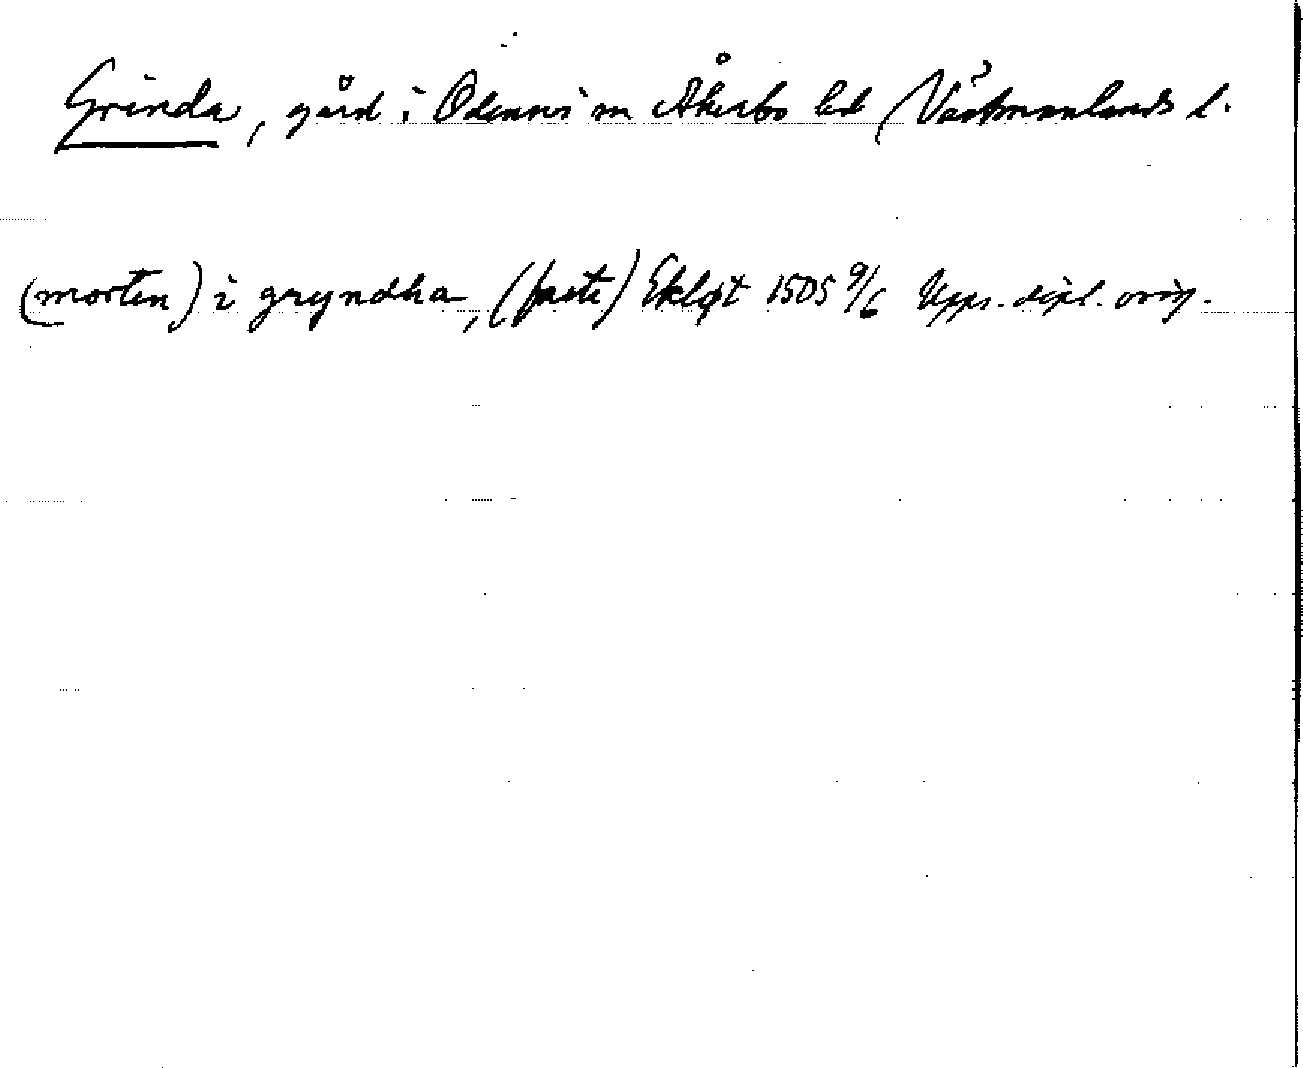 Grinda, gård i Odensvi sn Åkerbo hd Västmanlands l.
(morten) i gryndha, (faste) Ekløt 1505 9/6 Upps. dipl. orig.